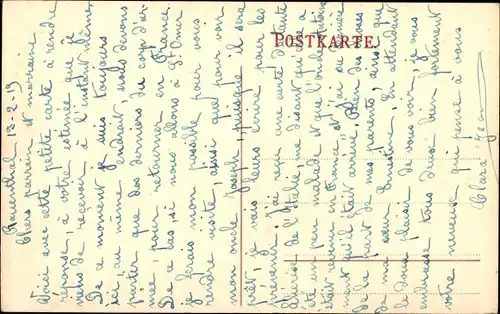 POSTKARTE
Rauenthal 13-2-19
Chers parrain et marraine
Voici avec cette petite carte à rendre
réponse, à votre estimée que je
viens de recevoir à l'instant même,
De ce moment je suis toujours
ici, au même endroit, nous devons
partir que des derniers du corp d'ar-
mée, pour retourner en France.
De ce cas, si nous allons à St Omer
je ferais mon possible pour vous
rendre visite, ainsi que pour voir
mon oncle Joseph, puisque il sera
près, je vais leurs écrire pour les
prévenir, j'ai reçu une carte de tante
de l'Italie, me disant qu'elle a
été un peu malade et que l'oncle
était revenu en France et
ment qu'il était arrivé. Bien des choses
de la part de mes parents, ainsi que
de ma sœur Ernestine. En attendant
le doux plaisir de vous voir, je vous
embrasse tous deux bien fortement
votre neveux, qui pense à vous
Clora Jean